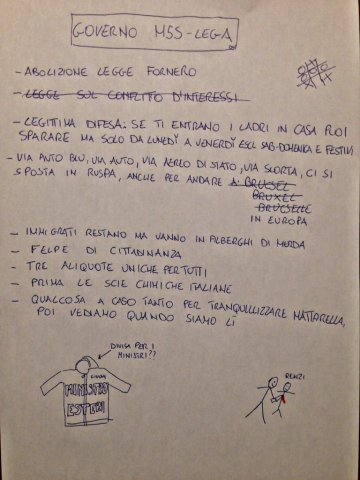 GOVERNO M5S-LEGA
- ABOLIZIONE LEGGE FORNERO
- LEGGE SUL CONFLITTO D'INTERESSI
- LEGITTIMA DIFESA: SE TI ENTRANO I LADRI IN CASA PUOI
SPARARE MA SOLO DA LUNEDÌ A VENERDÌ ESCL SAB-DOMENICA E FESTIVI
- VIA AUTO BLU, VIA AUTO, VIA AEREO DI STATO, VIA SCORTA, CI SI
SPOSTA IN RUSPA, ANCHE PER ANDARE A BRUCSEL
BRUXEL
BRUCSELLE
IN EUROPA
- IMMIGRATI RESTANO MA VANNO IN ALBERGHI DI MERDA
- FELPE DI CITTADINANZA
- TRE ALIQUOTE UNICHE PER TUTTI
- PRIMA LE SCIE CHIMICHE ITALIANE
- QUALCOSA A CASO TANTO PER TRANQUILLIZZARE MATTARELLA,
POI VEDIAMO QUANDO SIAMO LÌ
DIVISA PER I
MINISTRI??
MINISTRO
ESTERI
RENZI